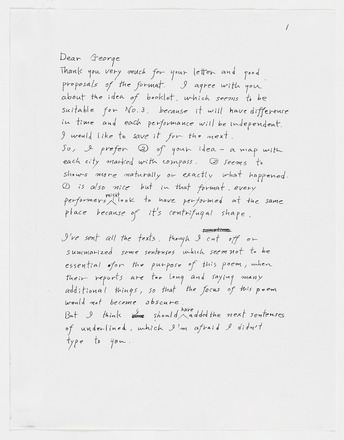 1
Dear George
Thank you very much for your letter and good
proposals of the format. I agree with you
about the idea of booklet, which seems to be
suitable for No.3, because it will have difference
in time and each performance will be independent.
I would like to save it for the next.
So, I prefer ② of your idea – a map with
each city marked with compass. ② seems to
shows more naturally or exactly what happened.
① is also nice but in that format, every
performers might look to have performed at the same
place because of it's centrifugal shape.
I've sent all the texts, though I cut off or
summarized some sentenses which seem not to be
essential for the purpose of this poem, when
their reports are too long and saying many
additional things, so that the focus of this poem
would not become obscure.
But I think should have added the next sentenses
of underlined, which I'm afraid I didn't
type to you.